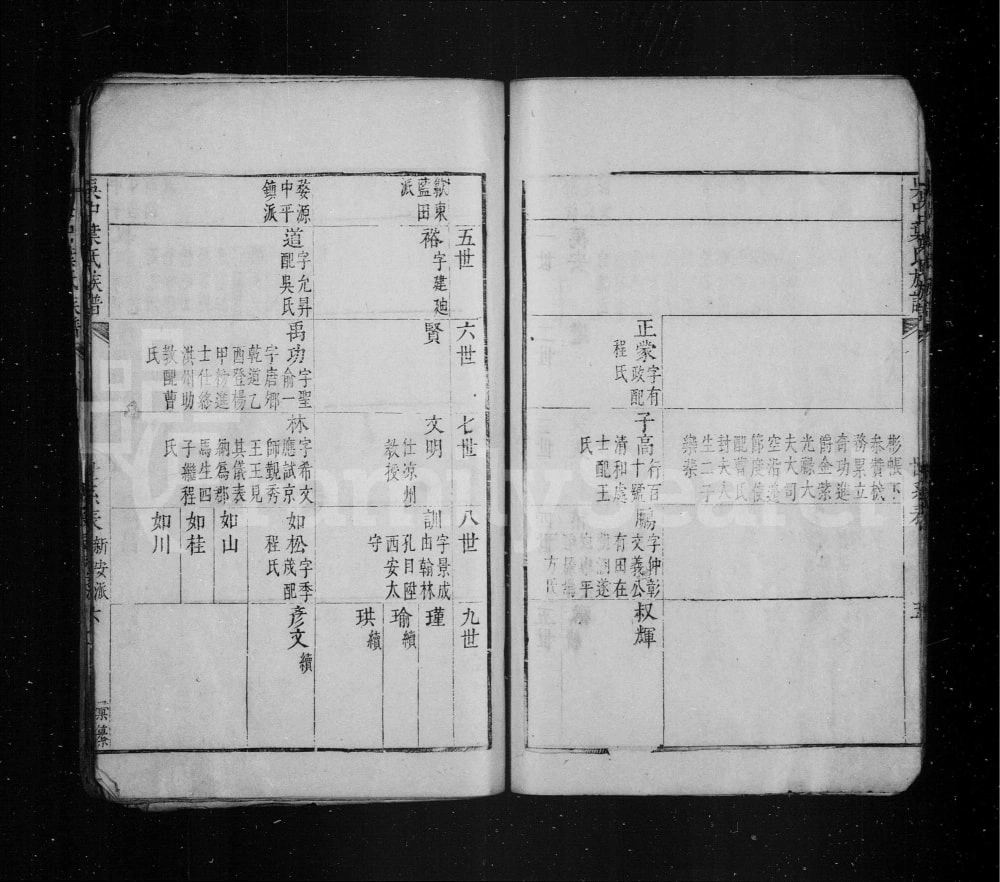 彬帳下
叅贊機
務累立
奇功進
爵金紫
光祿大
夫大司
空淯遂
節度使
配黃氏
封夫人
生二子
蘂蓁
正蒙字有政配程氏
子高行百十號清和處士配王氏
鵬字仲彰文義公有田在
遂
平
方氏
叔輝
五
五世
六世
七世
八世
九世
歙東藍田派
裕字建廸
賢
文明仕涼州教授
訓字景成由翰林孔目陞西安太守
瑾
瑜續
珙續
婺源中平鎮派
道字允昇配吳氏
禹功字聖俞一字唐鄉乾道乙酉登楊甲榜進士仕終洪州助教配曹氏
林字希文應試京師覲秀王王見其儀表納爲郡馬生四子繼程氏
如松字季茂配程氏
如山
如桂
如川
彥文續
吳中葉氏族譜
世系表新安派
FamilySearch